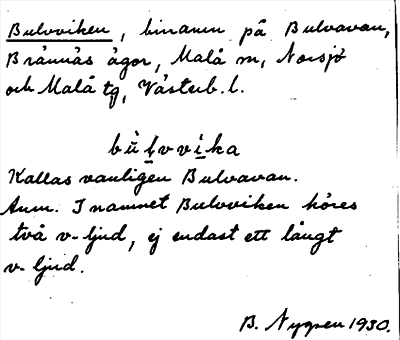 Bulvviken, binamn på Bulvavan,
Brännäs ägor, Malå m, Norsjö
och Malå tg, Västerb. l.
bùlvvika
Kallas vanligen Bulvavan.
Anm. I namnet Bulvviken höres
två v-ljud, ej endast ett långt
v-ljud.
B. Nygren 1930.